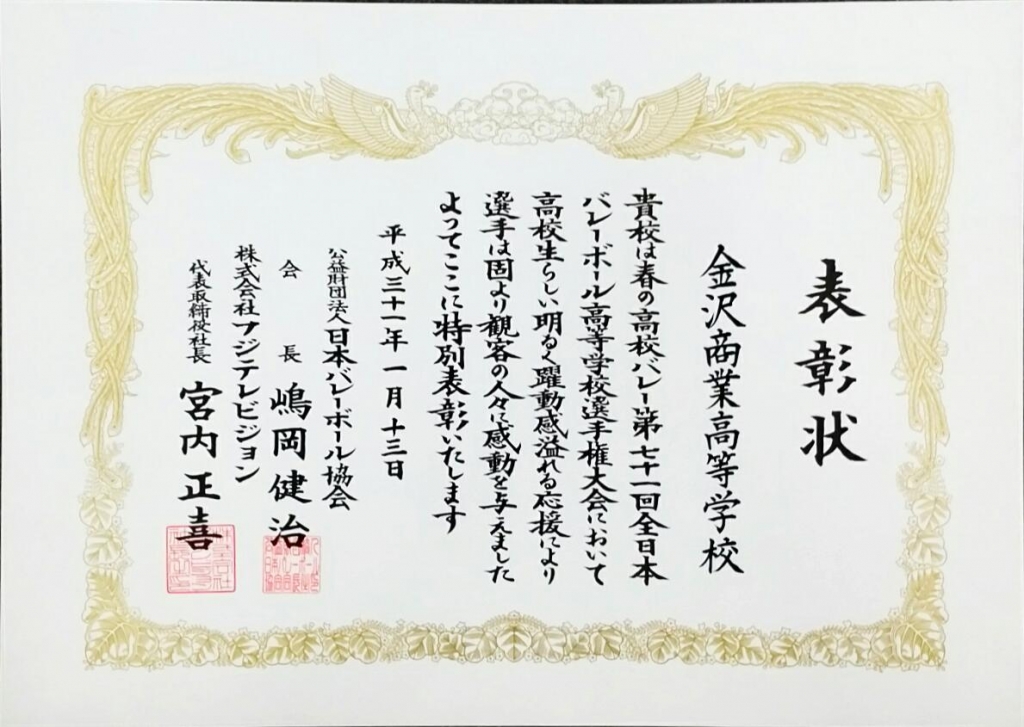 表彰状
金沢商業高等学校
貴校は春の高校バレー第七十一回全日本
バレーボール高等学校選手権大会において
高校生らしい明るく躍動感溢れる応援により
選手は固より観客の人々に感動を与えました
よってここに特別表彰いたします
平成三十一年一月十三日
公益財団法人日本バレーボール協会
会長 嶋岡健治
株式会社フジテレビジョン
代表取締役社長 宮内正喜